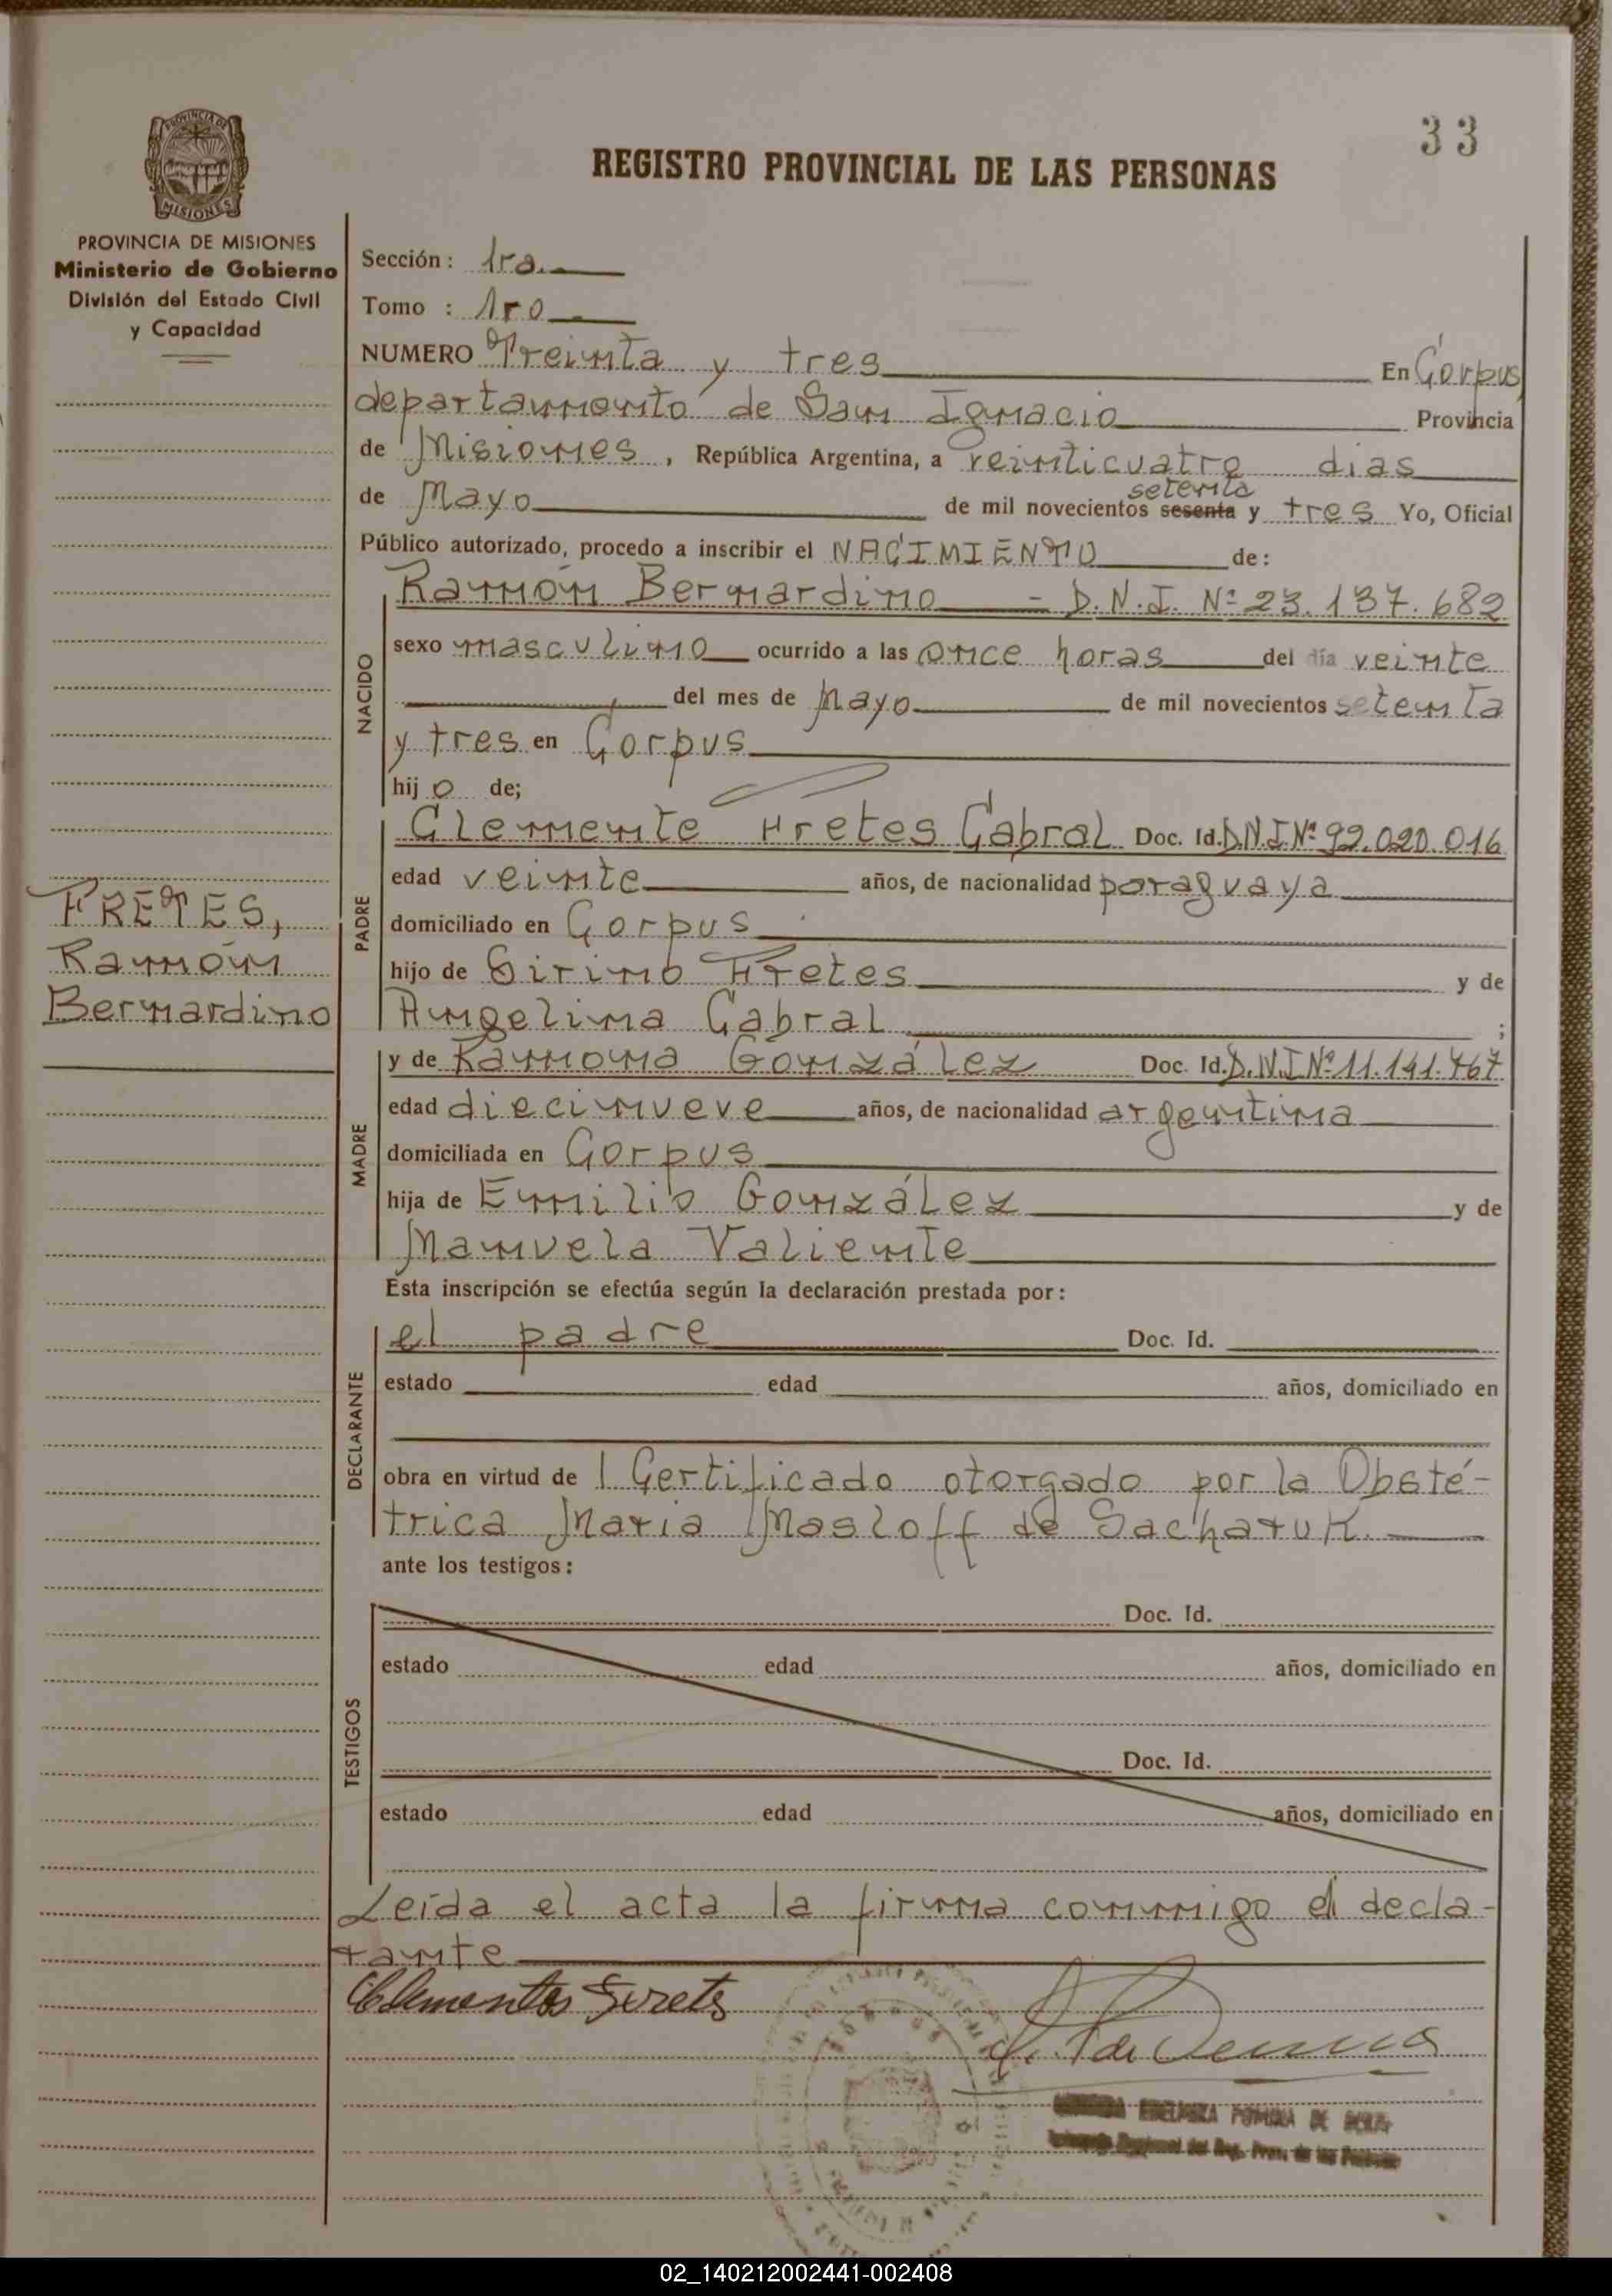 33
REGISTRO PROVINCIAL DE LAS PERSONAS
PROVINCIA DE
MISIONES
PROVINCIA DE MISIONES
Ministerio de Gobierno
División del Estado Civil
y Capacidad
Sección: 1ra.
Tomo : 1ro
NUMERO Treinta y tres En Corpus,
departamento de San Ignacio Provincia
de Misiones, República Argentina, a veinticuatro dias
de Mayo de mil novecientos sesenta setenta y tres Yo, Oficial
Público autorizado, procedo a inscribir el NACIMIENTO de:
Ramón Bernardino - D.N.I. Nº 23.137.682
sexo masculino ocurrido a las once horas del día veinte
del mes de Mayo de mil novecientos setenta
y tres en Corpus
hijo de;
NACIDO
Clemente Fretes Cabral Doc. Id. D.N.I Nº 92.020.016
edad veinte años, de nacionalidad paraguaya
domiciliado en Corpus
hijo de Sirino Fretes y de
Angelina Cabral ;
PADRE
FRETES,
Ramón
Bernardino
y de Ramona González Doc. Id. D.N.I Nº 11.141.767
edad diecinueve años, de nacionalidad argentina
domiciliada en Corpus
hija de Emilio González y de
Manuela Valiente
MADRE
Esta inscripción se efectúa según la declaración prestada por:
el padre Doc. Id.
estado edad años, domiciliado en
obra en virtud de 1 Certificado otorgado por la Obsté-
trica Maria Masloff de Sachatuk.
DECLARANTE
ante los testigos:
Doc. Id.
estado edad años, domiciliado en
Doc. Id.
estado edad años, domiciliado en
TESTIGOS
Leída el acta la firma conmigo el decla-
rante
Clementes Frets
DE
Reg. Prov. de las
02_140212002441-002408